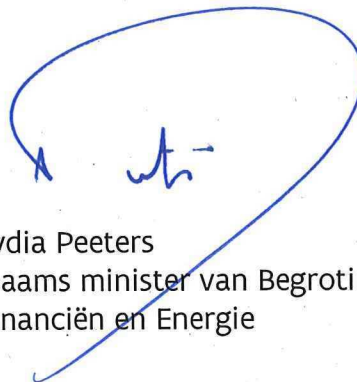 ydia Peeters
aams minister van Begroti
nanciën en Energie